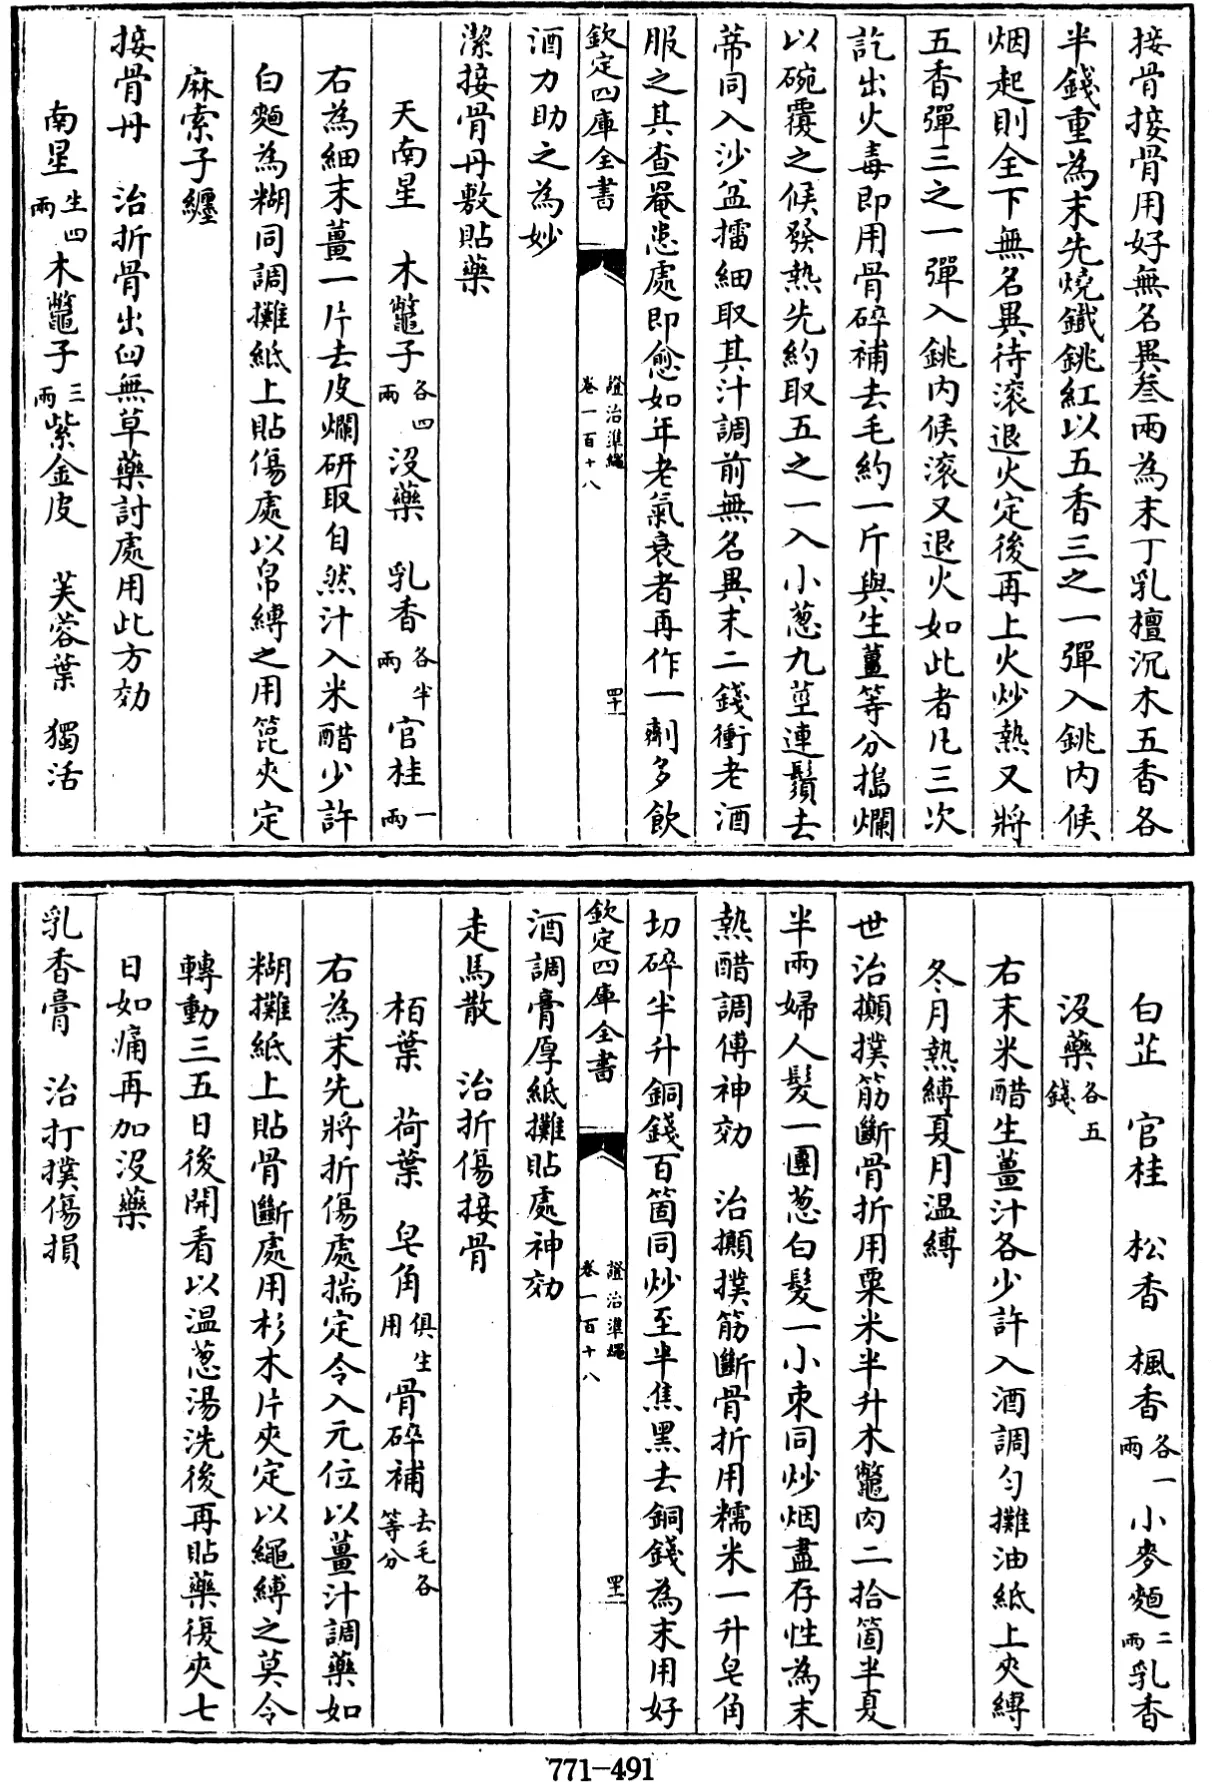 接骨接骨用好無名異叁兩為末丁乳檀沉木五香各
半錢重為末先燒鐵銚紅以五香三之一彈入銚内候
烟起則全下無名異待滚退火定後再上火炒熱又將
五香彈三之一彈入銚内候滚又退火如此者凡三次
訖出火毒即用骨碎補去毛約一斤與生薑等分搗爛
以碗覆之候發熱先約取五之一入小葱九莖連鬚去
蒂同入沙盆擂細取其汁調前無名異末二錢衝老酒
服之其查罨患處即愈如年老氣衰者再作一劑多飲
欽定四庫全書
證治準繩
卷一百十八
四十
酒力助之為妙
潔接骨丹敷貼藥
天南星 木鼈子各四兩 没藥 乳香各半兩 官桂一兩
右為細末薑一片去皮爛研取自然汁入米醋少許
白麪為糊同調攤紙上貼傷處以帛縛之用篦夾定
麻索子纏
接骨丹 治折骨出臼無草藥討處用此方効
南星生四兩 木鼈子三兩 紫金皮 芙蓉葉 獨活
白芷 官桂 松香 楓香各一兩 小麥麪二兩 乳香
没藥各五錢
右末米醋生薑汁各少許入酒調勻攤油紙上夾縛
冬月熱縛夏月温縛
世治攧撲筋斷骨折用粟米半升木鼈肉二拾箇半夏
半兩婦人髮一團葱白髮一小束同炒烟盡存性為末
熱醋調傅神効 治攧撲筋斷骨折用糯米一升皂角
切碎半升銅錢百箇同炒至半焦黑去銅錢為末用好
欽定四庫全書
證治準繩
卷一百十八
四十一
酒調膏厚紙攤貼處神効
走馬散 治折傷接骨
栢葉 荷葉 皂角俱生用 骨碎補去毛各等分
右為末先將折傷處揣定令入元位以薑汁調藥如
糊攤紙上貼骨斷處用杉木片夾定以繩縛之莫令
轉動三五日後開看以温葱湯洗後再貼藥復夾七
日如痛再加没藥
乳香膏 治打撲傷損
771-491